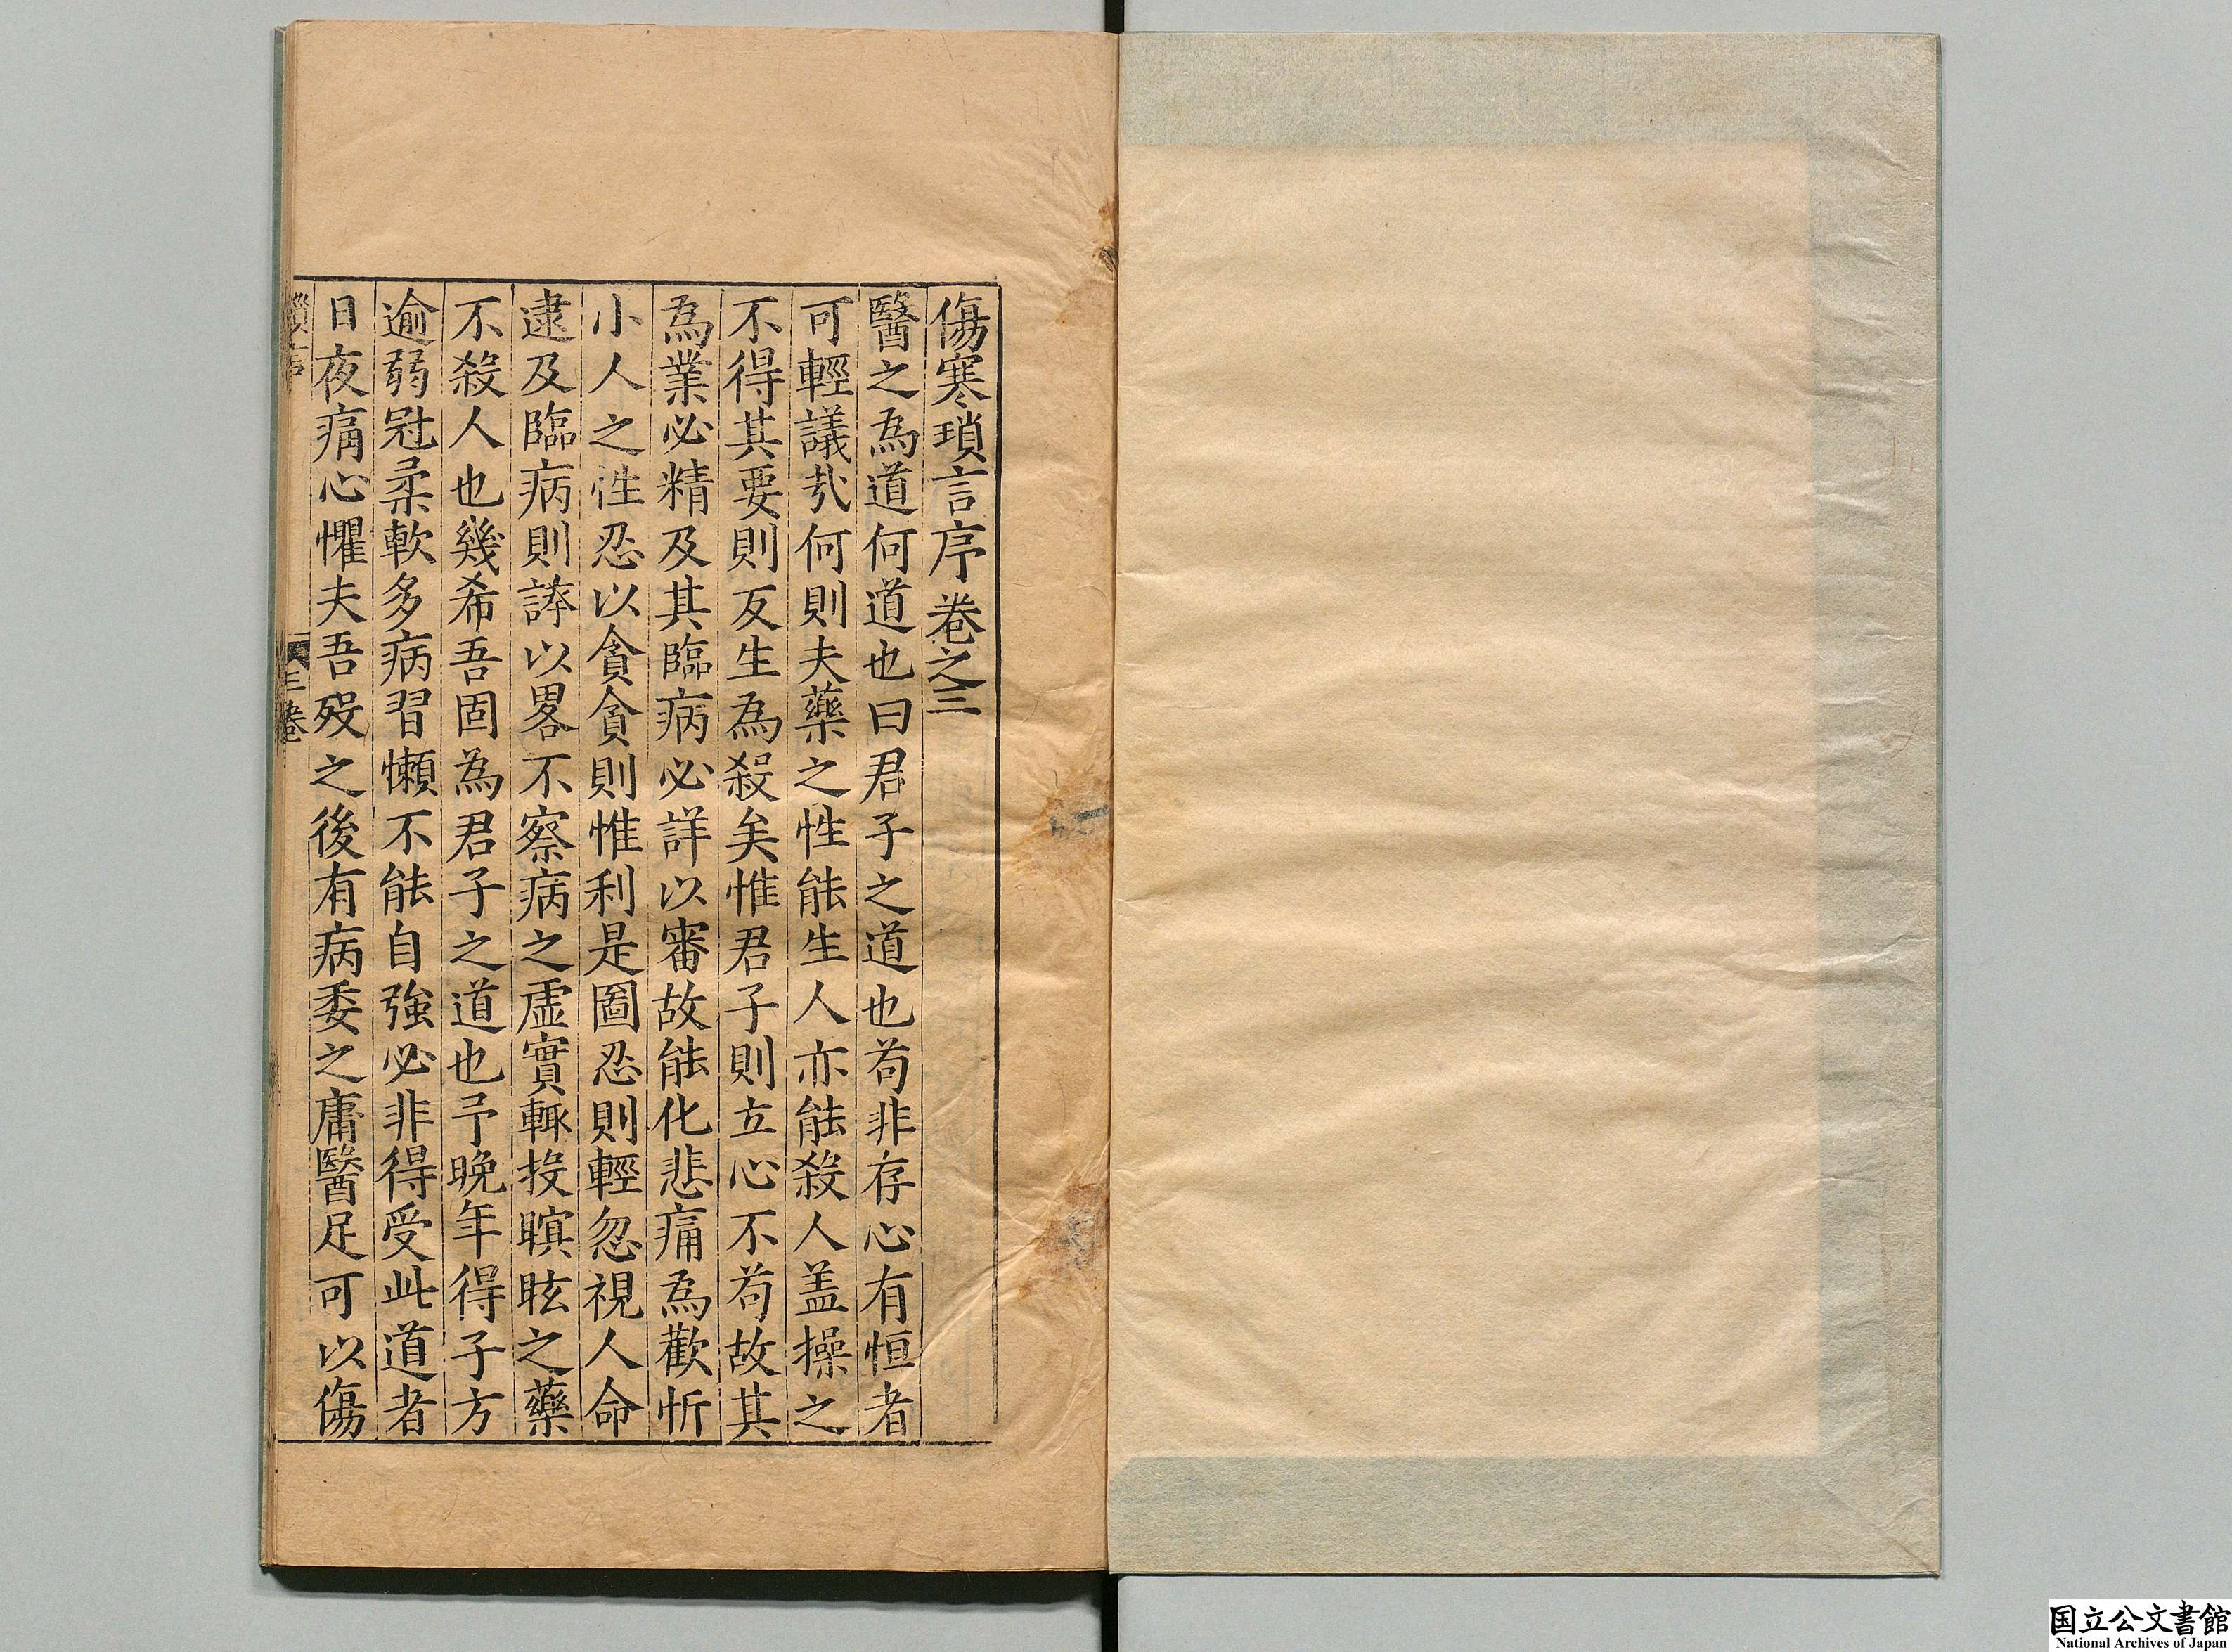 傷寒瑣言序 卷之三
醫之為道何道也曰君子之道也苟非存心有恒者
可輕議㢤何則夫藥之性能生人亦能殺人盖操之
不得其要則反生為殺矣惟君子則立心不苟故其
為業必精及其臨病必詳以審故能化悲痛為歡忻
小人之性忍以貪貪則惟利是圖忍則輕忽視人命
逮及臨病則誇以畧不察病之虛實輒投瞑眩之藥
不殺人也幾希吾固為君子之道也予晚年得子方
逾弱冠柔軟多病習懶不能自強必非得受此道者
日夜痛心懼夫吾歿之後有病委之庸醫足可以傷
瑣言序 三卷
国立公文書館
National Archives of Japan